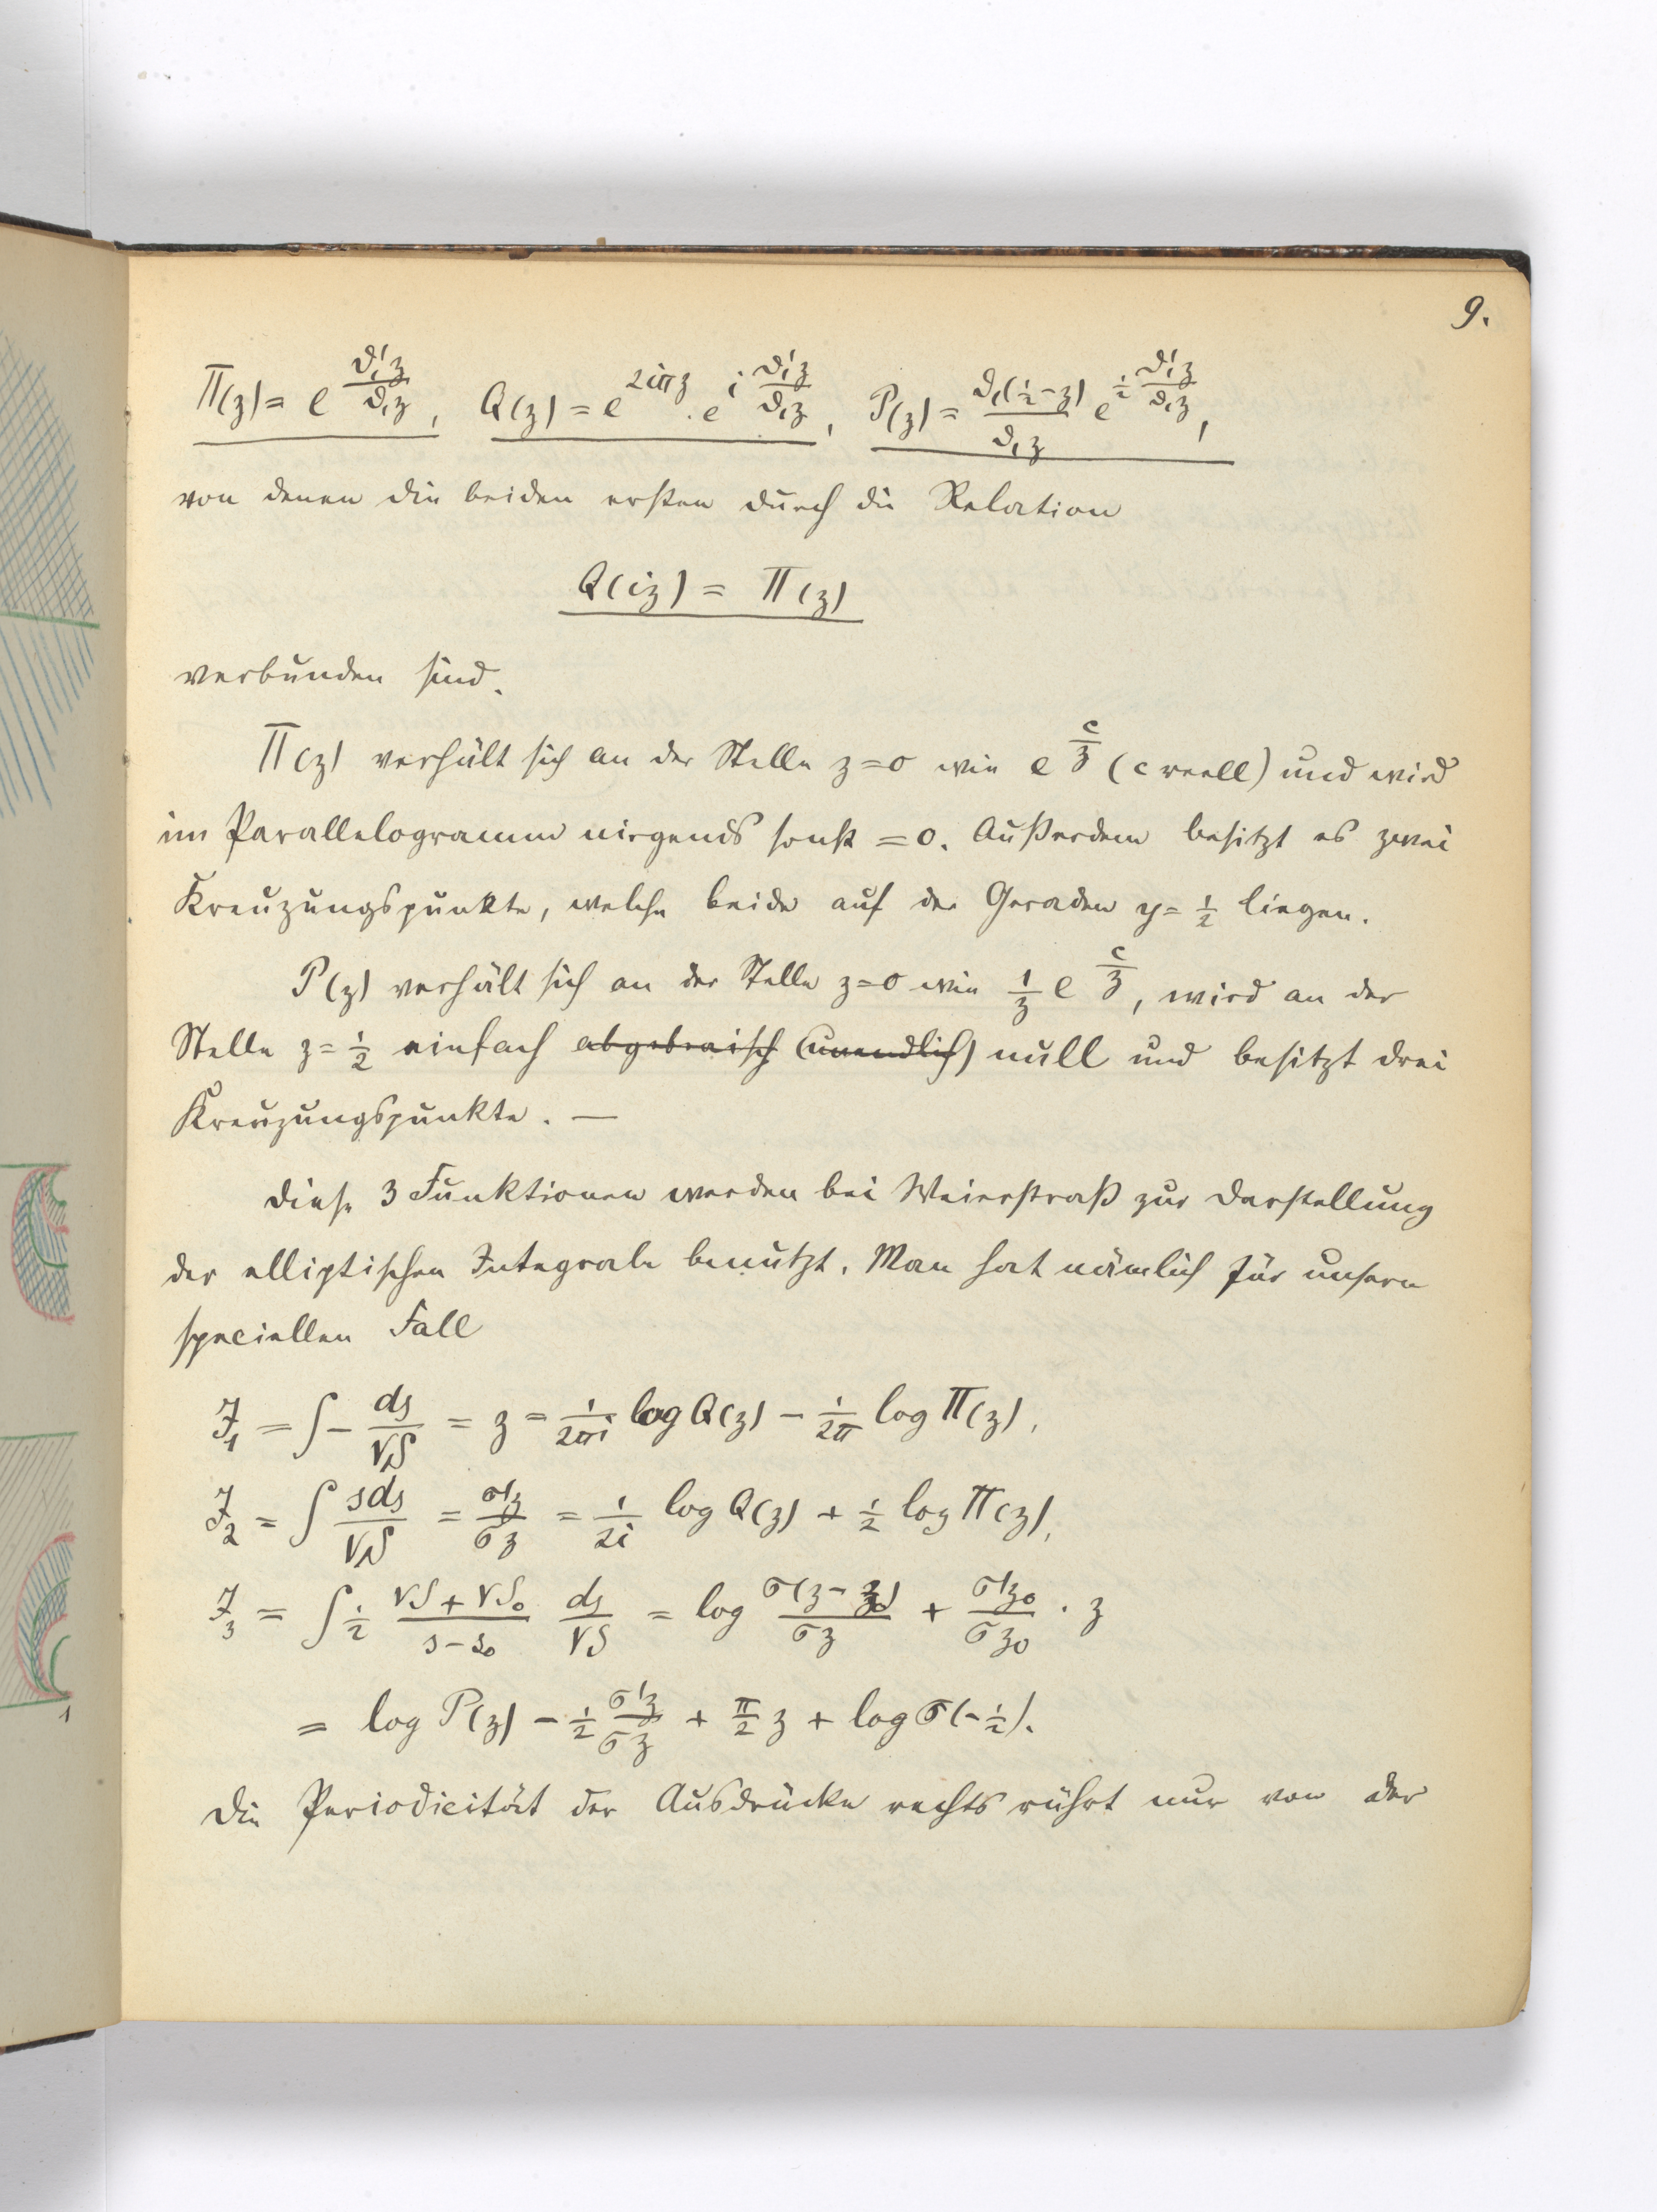 9.
Π(z) = e^{ϑ₁'z/ϑ₁z}, Q(z) = e^{2iπz} · e^{i ϑ₁'z/ϑ₁z}, P(z) = ϑ₁(½-z)/ϑ₁z e^{½ ϑ₁'z/ϑ₁z},
von denen die beiden ersten durch die Relation
Q(iz) = Π(z)
verbunden sind.
Π(z) verhält sich an der Stelle z=0 wie e^{c/z} (c reell) und wird
im Parallelogramm nirgends sonst =0. Außerdem besitzt es zwei
Kreuzungspunkte, welche beide auf der Geraden y=½ liegen.
P(z) verhält sich an der Stelle z=0 wie 1/z e^{c/z}, wird an der
Stelle z=½ einfach abgebraisch (unendlich) null und besitzt drei
Kreuzungspunkte. —
Diese 3 Funktionen werden bei Weierstraß zur Darstellung
der elliptischen Integrale benutzt. Man hat nämlich für unsern
speciellen Fall
J₁ = ∫ - ds/√S = z = 1/2πi log Q(z) - 1/2π log Π(z),
J₂ = ∫ sds/√S = σ'z/σz = 1/2i log Q(z) + ½ log Π(z),
J₃ = ∫ ½ (√S + √S₀)/(s-s₀) ds/√S = log σ(z-z₀)/σz + σ'z₀/σz₀ · z
= log P(z) - ½ σ'z/σz + π/2 z + log σ(-½).
Die Periodicität der Ausdrücke rechts rührt nur von der
1